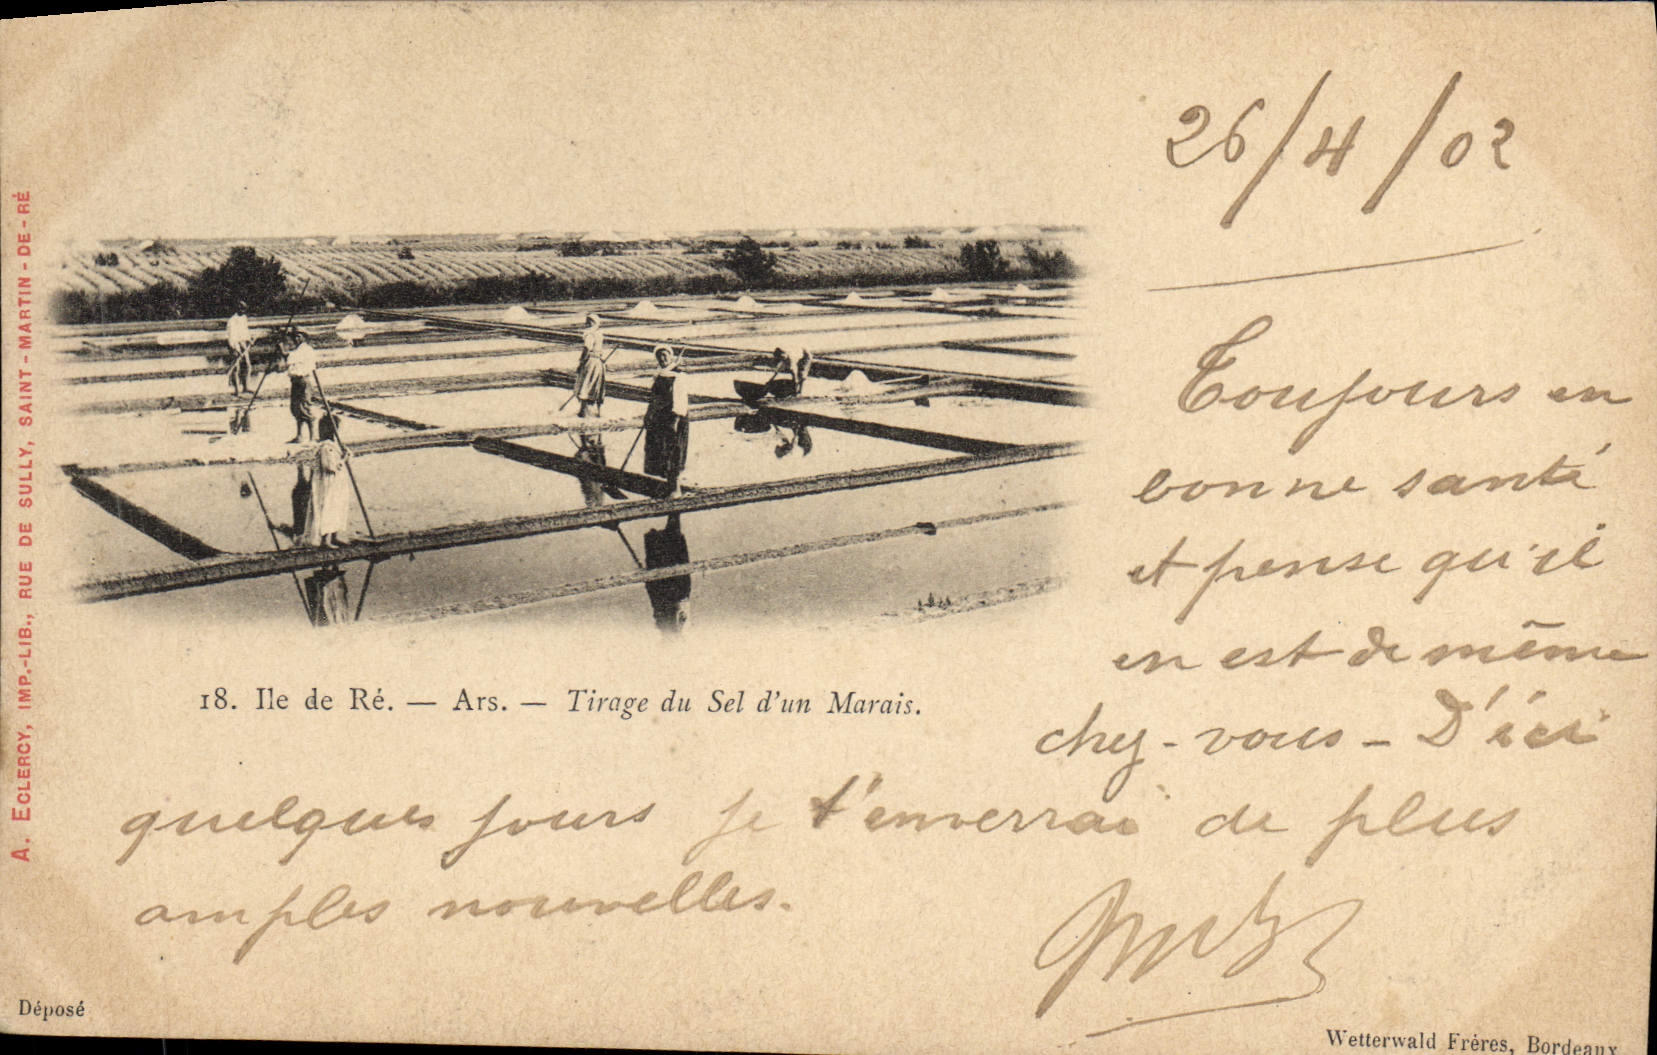 26/4/02
Toujours en
bonne santé
et pense qu'il
en est de même
chez-vous - D'ici
quelques jours je t'enverrai de plus
amples nouvelles.
18. Ile de Ré. — Ars. — Tirage du Sel d'un Marais.
A. ECLERCY, IMP.-LIB., RUE DE SULLY, SAINT-MARTIN-DE-RÉ
Déposé
Wetterwald Frères, Bordeaux